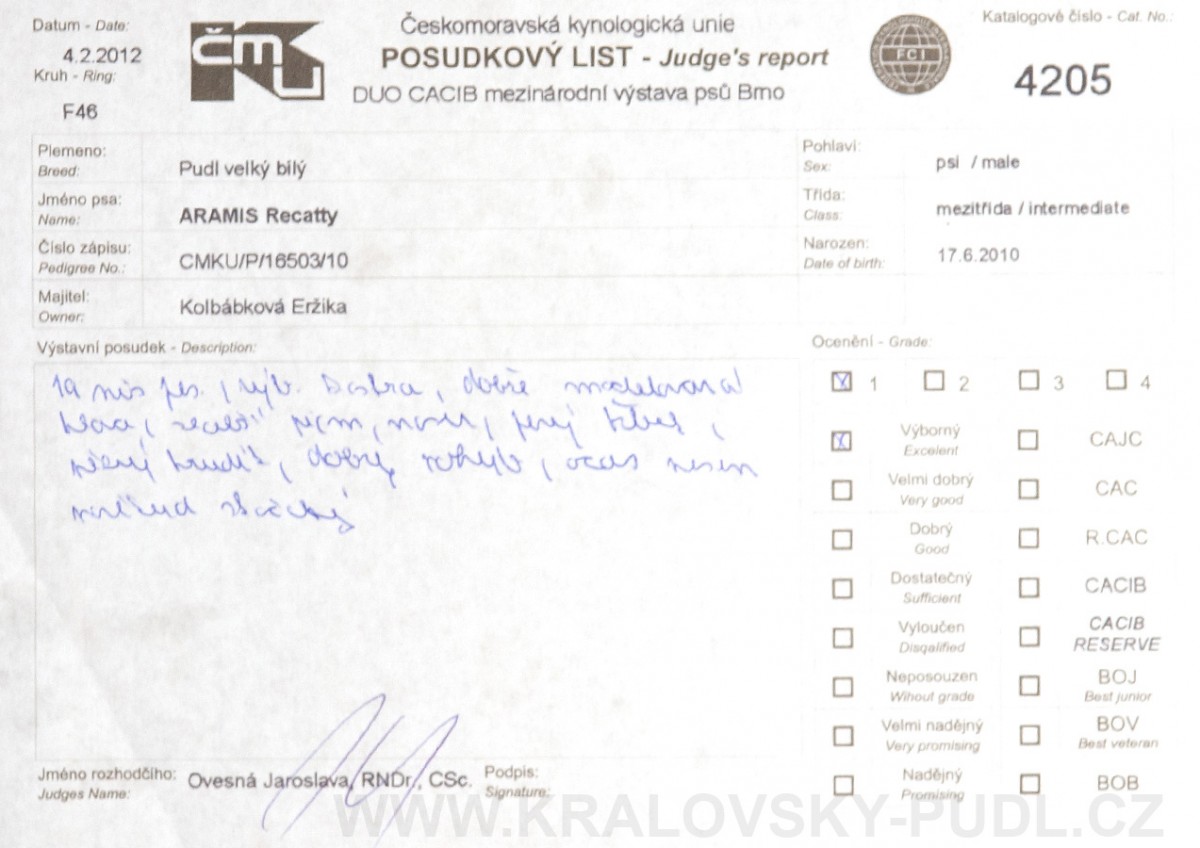 Datum - Date:
4.2.2012
Kruh - Ring:
F46
ČMKU
Českomoravská kynologická unie
POSUDKOVÝ LIST - Judge's report
DUO CACIB mezinárodní výstava psů Brno
FCI
Katalogové číslo - Cat. No.:
4205
Plemeno:
Breed:
Pudl velký bílý
Jméno psa:
Name:
ARAMIS Recatty
Číslo zápisu:
Pedigree No.:
CMKU/P/16503/10
Majitel:
Owner:
Kolbábková Eržika
Pohlaví:
Sex:
psi / male
Třída:
Class:
mezitřída / intermediate
Narozen:
Date of birth:
17.6.2010
Výstavní posudek - Description:
pes, výb. dobře modelovaná
hlava, pevný hřbet,
hrudník, dobrý pohyb, ocas nesen
Ocenění - Grade:
1 2 3 4
Výborný
Excelent
CAJC
Velmi dobrý
Very good
CAC
Dobrý
Good
R.CAC
Dostatečný
Sufficient
CACIB
Vyloučen
Disqalified
CACIB
RESERVE
Neposouzen
Wihout grade
BOJ
Best junior
Velmi nadějný
Very promising
BOV
Best veteran
Nadějný
Promising
BOB
Jméno rozhodčího:
Judges Name:
Ovesná Jaroslava, RNDr., CSc.
Podpis:
Signature:
WWW.KRALOVSKY-PUDL.CZ